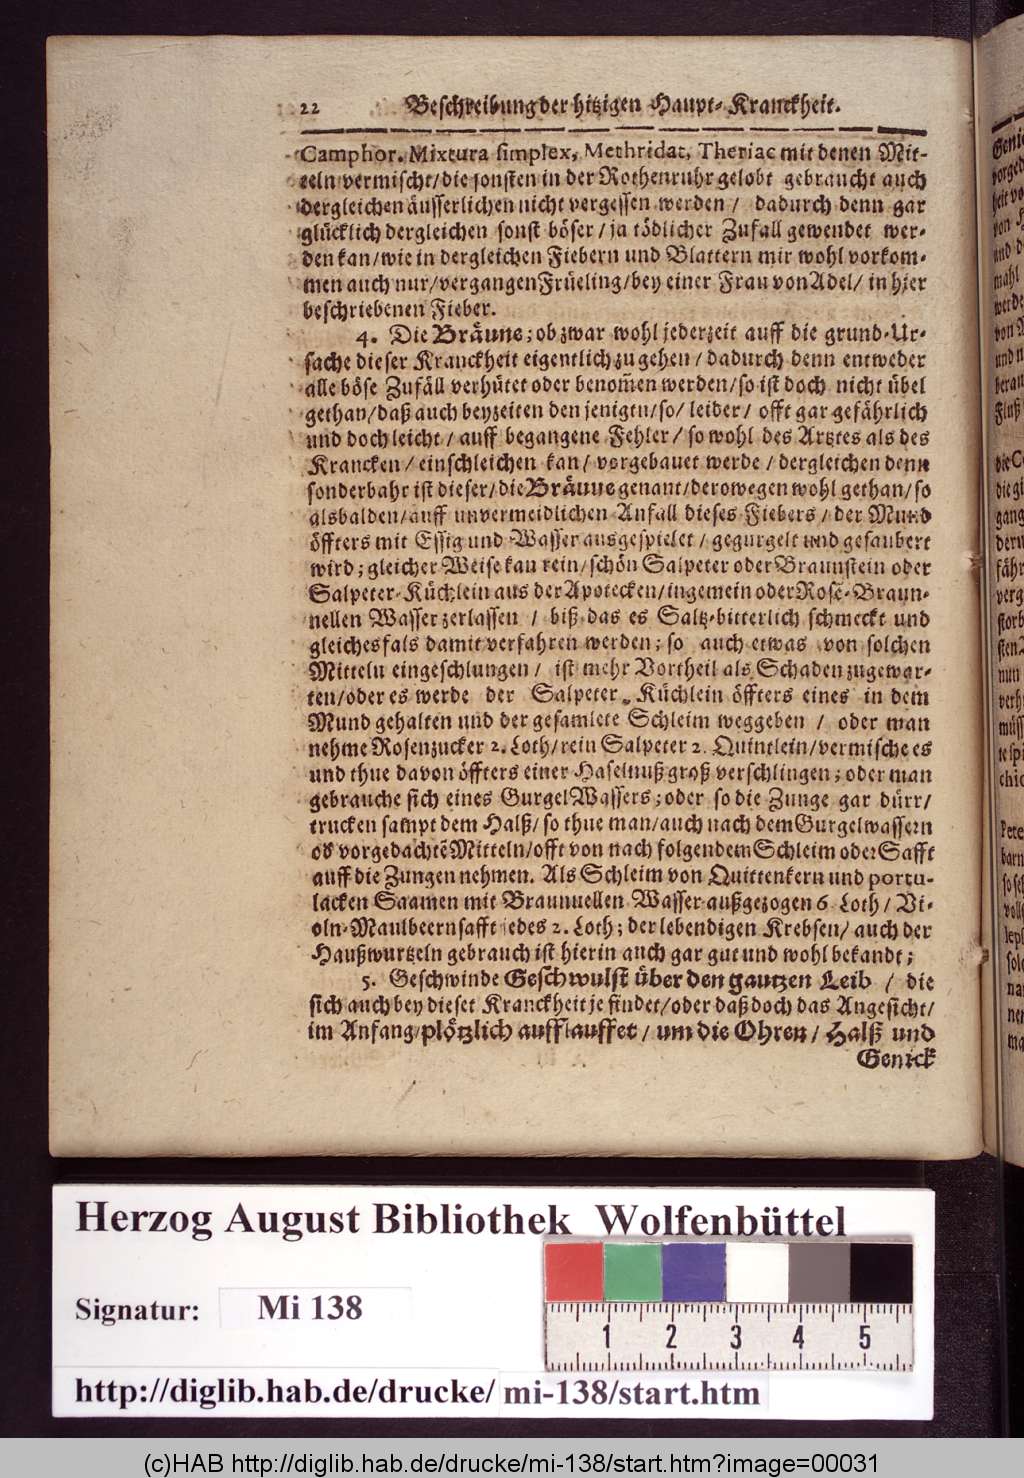 22 Beschreibung der hitzigen Haupt-Kranckheit.
Camphor. Mixtura simplex, Methridat, Theriac mit denen Mit-
teln vermischt/die sonsten in der Rothenruhr gelobt gebraucht auch
dergleichen äusserlichen nicht vergessen werden / dadurch denn gar
glücklich dergleichen sonst böser/ja tödlicher Zufall gewendet wer-
den kan/wie in dergleichen Fiebern und Blattern mir wohl vorkom-
men auch nur/vergangen Früeling/bey einer Frau von Adel/ in hier
beschriebenen Fieber.
4. Die Bräune; ob zwar wohl jederzeit auff die grund-Ur-
sache dieser Kranckheit eigentlich zu gehen/dadurch denn entweder
alle böse Zufäll verhütet oder benom̃en werden/so ist doch nicht übel
gethan/daß auch beyzeiten den jenigtn/so/leider/ offt gar gefährlich
und doch leicht/auff begangene Fehler/so wohl des Artztes als des
Krancken/einschleichen kan/vorgebauet werde/dergleichen denn
sonderbahr ist dieser/die Bräune genant/derowegen wohl gethan/so
alsbalden/auff unvermeidlichen Anfall dieses Fiebers/der Mund
öffters mit Essig und Wasser ausgespielet/gegurgelt und gesaubert
wird; gleicher Weise kan rein/schön Salpeter oder Braunstein oder
Salpeter-Küchlein aus der Apotecken/ingemein oder Rose-Braun-
nellen Wasser zerlassen / biß das es Saltz-bitterlich schmeckt und
gleichesfals damit verfahren werden; so auch etwas von solchen
Mitteln eingeschlungen/ ist mehr Vortheil als Schaden zugewar-
ten/oder es werde der Salpeter-Küchlein öffters eines in dem
Mund gehalten und der gesamlete Schleim weggeben / oder man
nehme Rosenzucker 2. Loth/rein Salpeter 2. Quintlein/vermische es
und thue davon öffters einer Haselnuß groß verschlingen; oder man
gebrauche sich eines Gurgel Wassers; oder so die Zunge gar dürr/
trucken sampt dem Halß/so thue man/auch nach dem Gurgelwassern
ob vorgedachtẽ Mitteln/offt von nach folgendem Schleim oder Safft
auff die Zungen nehmen. Als Schleim von Quittenkern und portu-
lacken Saamen mit Braunuellen Wasser außgezogen 6 Loth/Vi-
oln-Maulbeernsafft jedes 2. Loth; der lebendigen Krebsen/auch der
Haußwurtzeln gebrauch ist hierin auch gar gut und wohl bekandt;
5. Geschwinde Geschwulst über den gantzen Leib / die
sich auch bey dieser Kranckheit je findet/oder daß doch das Angesicht/
im Anfang/plötzlich aufflauffet/um die Ohren/Halß und
Genick
Herzog August Bibliothek Wolfenbüttel
Signatur: Mi 138
1 2 3 4 5
http://diglib.hab.de/drucke/ mi-138/start.htm
(c)HAB http://diglib.hab.de/drucke/mi-138/start.htm?image=00031